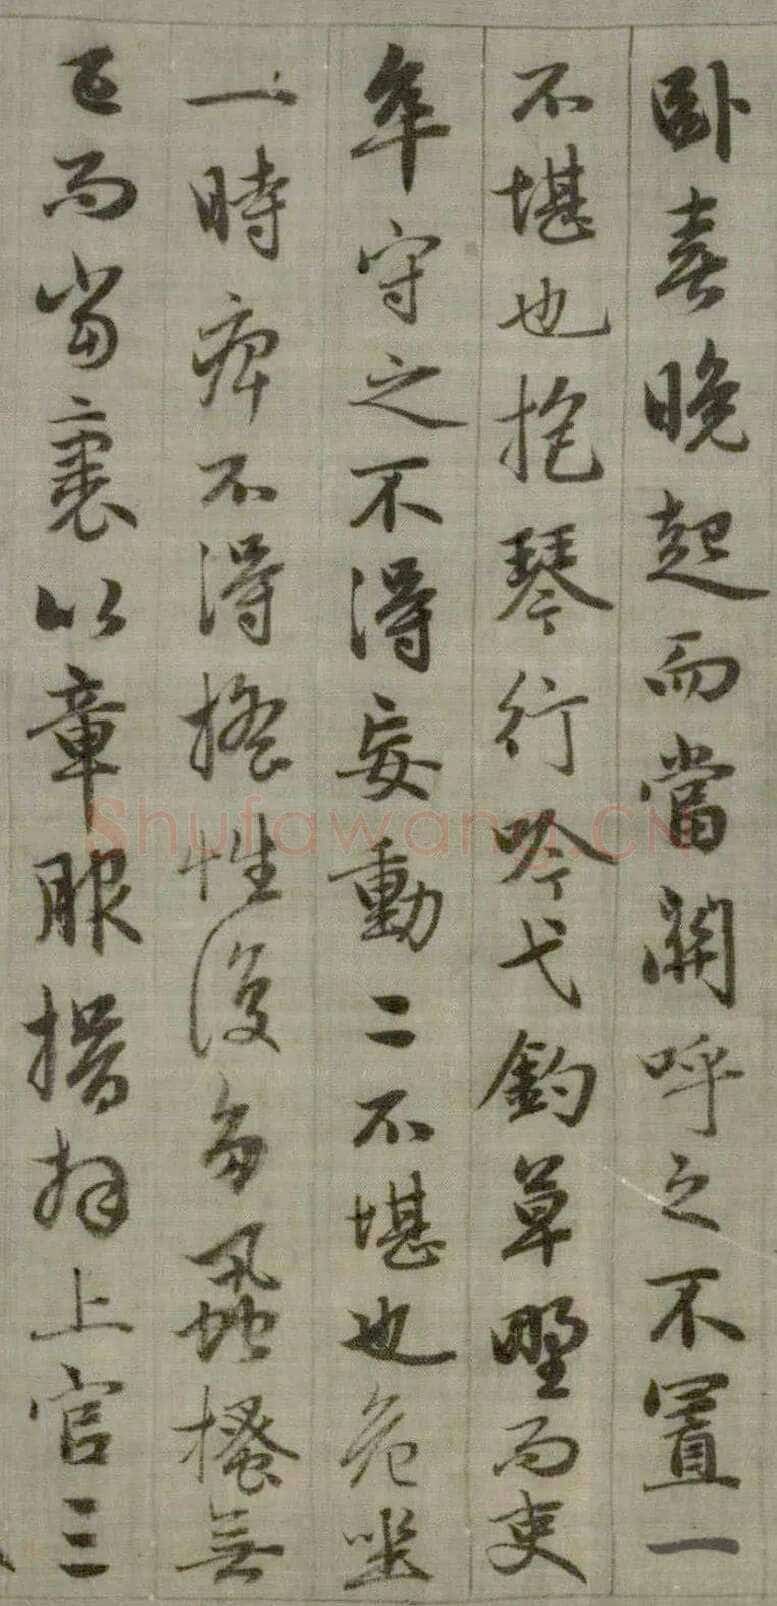 卧喜晚起而當關呼之不置一
不堪也抱琴行吟弋釣草野而吏
卒守之不得妄動二不堪也危坐
一時痺不得搖性復多蝨搔無
已而當裹以章服揖拜上官三
Shufawang.CN